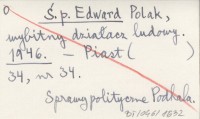 Ś.p. Edward Polak,
wybitny działacz ludowy.
1946. — Piast (        )
34, nr 34.
Sprawy polityczne Podhala.